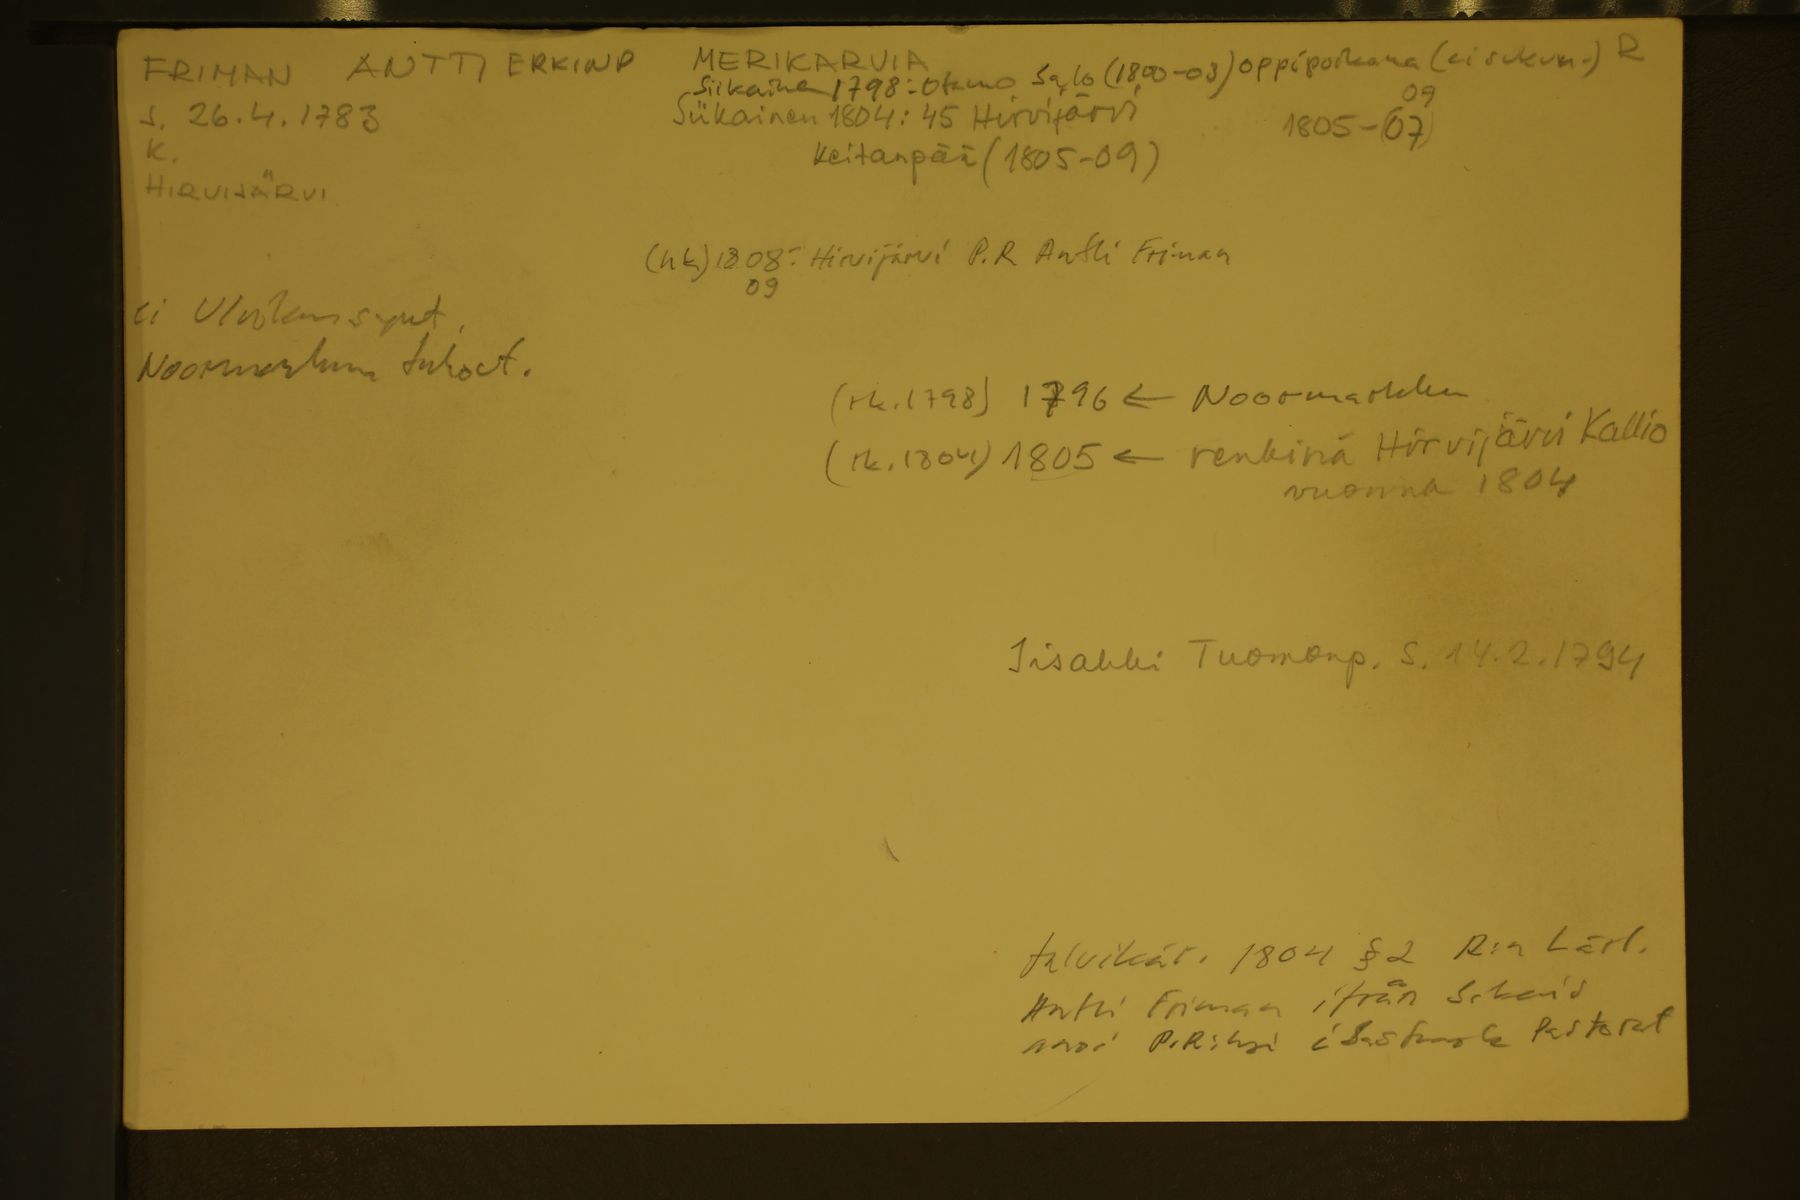 FRIMAN ANTTI ERKINP MERIKARVIA R
Siikainen 1798: Otamo Salo (1800-03) oppipoikana (ei sukun.)
s. 26.4.1783 Siikainen 1804: 45 Hirvijärvi 1805-(07)
09
K. Keitanpää (1805-09)
HIRVIJÄRVI
(hk) 1808: Hirvijärvi P.R Antti Friman
09
ei Ulvilan synt.
Noormarkun tuhout.
(rk. 1798) 1796 ← Noormarkku
(rk. 1804) 1805 ← renkinä Hirvijärvi Kallio
vuonna 1804
Iisakki Tuomonp. s. 14.2.1794
talvikär. 1804 § 2
Antti Friman ifrån
P.R. i Pastorat